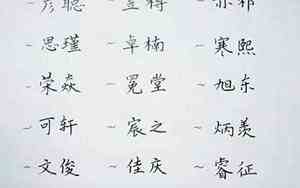 彦聪 ~ 立樽 ~ 亦祁
~ 思瑾 ~ 卓楠 ~ 寒熙
~ 荣焱 ~ 冕堂 ~ 旭东
~ 可轩 ~ 宸之 ~ 炳羡
~ 文俊 ~ 佳庆 ~ 睿征